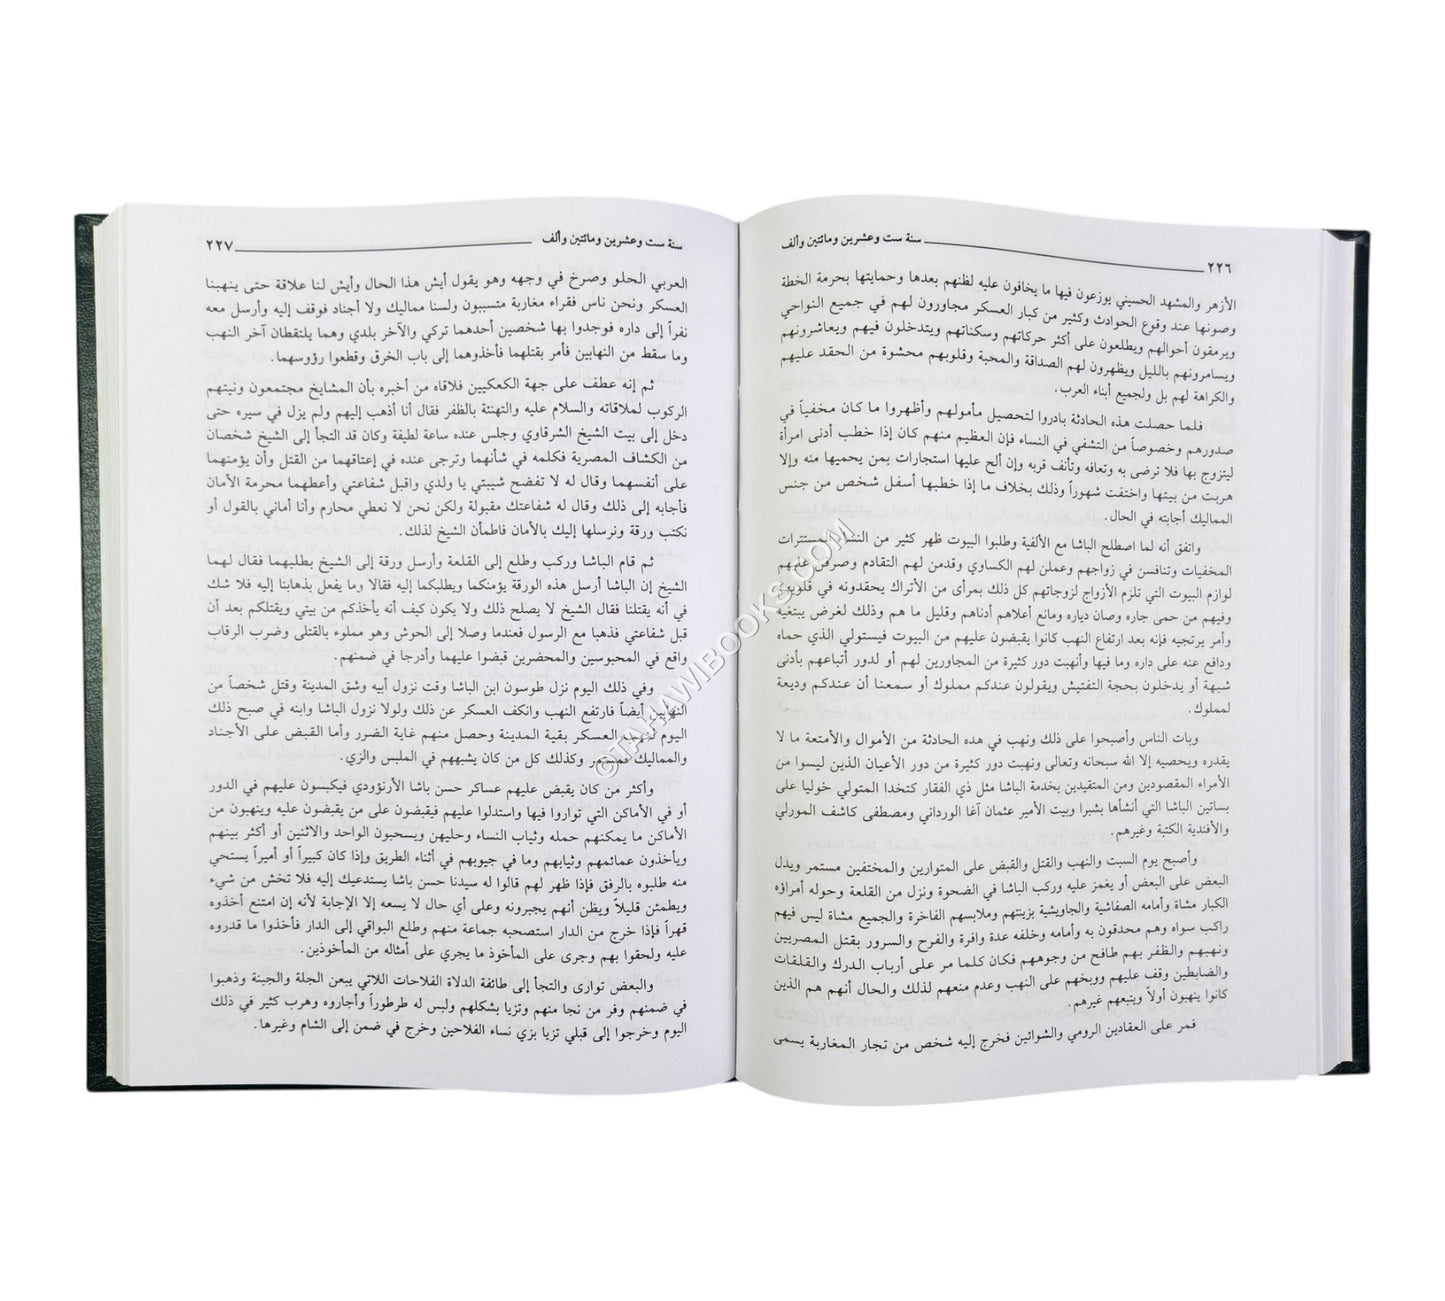 ٢٢٦ سنة ست وعشرين ومائتين وألف
الأزهر والمشهد الحسيني يوزعون فيها ما يخافون عليه لظنهم بعدها وحمايتها بحرمة الخطة
وصونها عند وقوع الحوادث وكثير من كبار العسكر مجاورون لهم في جميع النواحي
ويرمقون أحوالهم ويطلعون على أكثر حركاتهم وسكناتهم ويتدخلون فيهم ويعاشرونهم
ويسامرونهم بالليل ويظهرون لهم الصداقة والمحبة وقلوبهم محشوة من الحقد عليهم
والكراهة لهم بل ولجميع أبناء العرب.
فلما حصلت هذه الحادثة بادروا لتحصيل مأمولهم وأظهروا ما كان مخفياً في
صدورهم وخصوصاً من التشفي في النساء فإن العظيم منهم كان إذا خطب أدنى امرأة
ليتزوج بها فلا ترضى به وتعافه وتأنف قربه وإن ألح عليها استجارات بمن يحميها منه وإلا
هربت من بيتها واختفت شهوراً وذلك بخلاف ما إذا خطبها أسفل شخص من جنس
المماليك أجابته في الحال.
واتفق أنه لما اصطلح الباشا مع الألفية وطلبوا البيوت ظهر كثير من النساء المستترات
المخفيات وتنافسن في زواجهم وعملن لهم الكساوي وقدمن لهم التقادم وصرفن عليهم
لوازم البيوت التي تلزم الأزواج لزوجاتهم كل ذلك بمرأى من الأتراك يحقدونه في قلوبهم
وفيهم من حمى جاره وصان دياره ومانع أعلاهم أدناهم وقليل ما هم وذلك لغرض يبتغيه
وأمر يرتجيه فإنه بعد ارتفاع النهب كانوا يقبضون عليهم من البيوت فيستولي الذي حماه
ودافع عنه على داره وما فيها وأنهبت دور كثيرة من المجاورين لهم أو لدور أتباعهم بأدنى
شبهة أو يدخلون بحجة التفتيش ويقولون عندكم مملوك أو سمعنا أن عندكم وديعة
لمملوك.
وبات الناس وأصبحوا على ذلك ونهب في هذه الحادثة من الأموال والأمتعة ما لا
يقدره ويحصيه إلا الله سبحانه وتعالى ونهبت دور كثيرة من دور الأعيان الذين ليسوا من
الأمراء المقصودين ومن المتقيدين بخدمة الباشا مثل ذي الفقار كتخدا المتولي خوليا على
بساتين الباشا التي أنشأها بشبرا وبيت الأمير عثمان آغا الورداني ومصطفى كاشف المورلي
والأفندية الكتبة وغيرهم.
وأصبح يوم السبت والنهب والقتل والقبض على المتوارين والمختفين مستمر ويذل
البعض على البعض أو يغمز عليه وركب الباشا في الضحوة ونزل من القلعة وحوله أمراؤه
الكبار مشاة وأمامه الصفاشية والجاويشية بزينتهم وملابسهم الفاخرة والجميع مشاة ليس فيهم
راكب سواه وهم محدقون به وأمامه وخلفه عدة وافرة والفرح والسرور بقتل المصريين
ونهبهم والظفر بهم طافح من وجوههم فكان كلما مر على أرباب الدرك والقلقات
والضابطين وقف عليهم ووبخهم على النهب وعدم منعهم لذلك والحال أنهم هم الذين
كانوا ينهبون أولاً ويتبعهم غيرهم.
فمر على العقادين الرومي والشوائين فخرج إليه شخص من تجار المغاربة يسمى
سنة ست وعشرين ومائتين وألف ٢٢٧
العربي الحلو وصرخ في وجهه وهو يقول أيش هذا الحال وأيش لنا علاقة حتى ينهبنا
العسكر ونحن ناس فقراء مغاربة متسببون ولسنا مماليك ولا أجناد فوقف إليه وأرسل معه
نفراً إلى داره فوجدوا بها شخصين أحدهما تركي والآخر بلدي وهما يلتقطان آخر النهب
وما سقط من النهابين فأمر بقتلهما فأخذوهما إلى باب الخرق وقطعوا رؤوسهما.
ثم إنه عطف على جهة الكعكيين فلاقاه من أخبره بأن المشايخ مجتمعون ونيتهم
الركوب لملاقاته والسلام عليه والتهنئة بالظفر فقال أنا أذهب إليهم ولم يزل في سيره حتى
دخل إلى بيت الشيخ الشرقاوي وجلس عنده ساعة لطيفة وكان قد التجأ إلى الشيخ شخصان
من الكشاف المصرية فكلمه في شأنهما وترجى عنده في إعتاقهما من القتل وأن يؤمنهما
على أنفسهما وقال له لا تفضح شيبتي يا ولدي واقبل شفاعتي وأعطهما محرمة الأمان
فأجابه إلى ذلك وقال له شفاعتك مقبولة ولكن نحن لا نعطي محارم وأنا أماني بالقول أو
نكتب ورقة ونرسلها إليك بالأمان فاطمأن الشيخ لذلك.
ثم قام الباشا وركب وطلع إلى القلعة وأرسل ورقة إلى الشيخ بطلبهما فقال لهما
الشيخ إن الباشا أرسل هذه الورقة يؤمنكما ويطلبكما إليه فقالا وما يفعل بذهابنا إليه فلا شك
في أنه يقتلنا فقال الشيخ لا يصلح ذلك ولا يكون كيف أنه يأخذكم من بيتي ويقتلكم بعد أن
قبل شفاعتي فذهبا مع الرسول فعندما وصلا إلى الحوش وهو مملوء بالقتلى وضرب الرقاب
واقع في المحبوسين والمحضرين قبضوا عليهما وأدرجا في ضمنهم.
وفي ذلك اليوم نزل طوسون ابن الباشا وقت نزول أبيه وشق المدينة وقتل شخصاً من
النهابين أيضاً فارتفع النهب وانكف العسكر عن ذلك ولولا نزول الباشا وابنه في صبح ذلك
اليوم لنهب العسكر بقية المدينة وحصل منهم غاية الضرر وأما القبض على الأجناد
والمماليك فمستمر وكذلك كل من كان يشبههم في الملبس والزي.
وأكثر من كان يقبض عليهم عساكر حسن باشا الأرنؤودي فيكبسون عليهم في الدور
أو في الأماكن التي تواروا فيها واستدلوا عليهم فيقبضون على من يقبضون عليه وينهبون من
الأماكن ما يمكنهم حمله وثياب النساء وحليهن ويسحبون الواحد والاثنين أو أكثر بينهم
ويأخذون عمائمهم وثيابهم وما في جيوبهم في أثناء الطريق وإذا كان كبيراً أو أميراً يستحي
منه طلبوه بالرفق فإذا ظهر لهم قالوا له سيدنا حسن باشا يستدعيك إليه فلا تخش من شيء
ويطمئن قليلاً ويظن أنهم يجبرونه وعلى أي حال لا يسعه إلا الإجابة لأنه إن امتنع أخذوه
قهراً فإذا خرج من الدار استصحبه جماعة منهم وطلع البواقي إلى الدار فأخذوا ما قدروه
عليه ولحقوا بهم وجرى على المأخوذ ما يجري على أمثاله من المأخوذين.
والبعض توارى والتجأ إلى طائفة الدلاة الفلاحات اللاتي يبعن الجلة والجبنة وذهبوا
في ضمنهم وفر من نجا منهم وتزيا بشكلهم ولبس له طرطوراً وأجاروه وهرب كثير في ذلك
اليوم وخرجوا إلى قبلي تزيا بزي نساء الفلاحين وخرج في ضمن إلى الشام وغيرها.
©TAHAWIBOOKS.COM